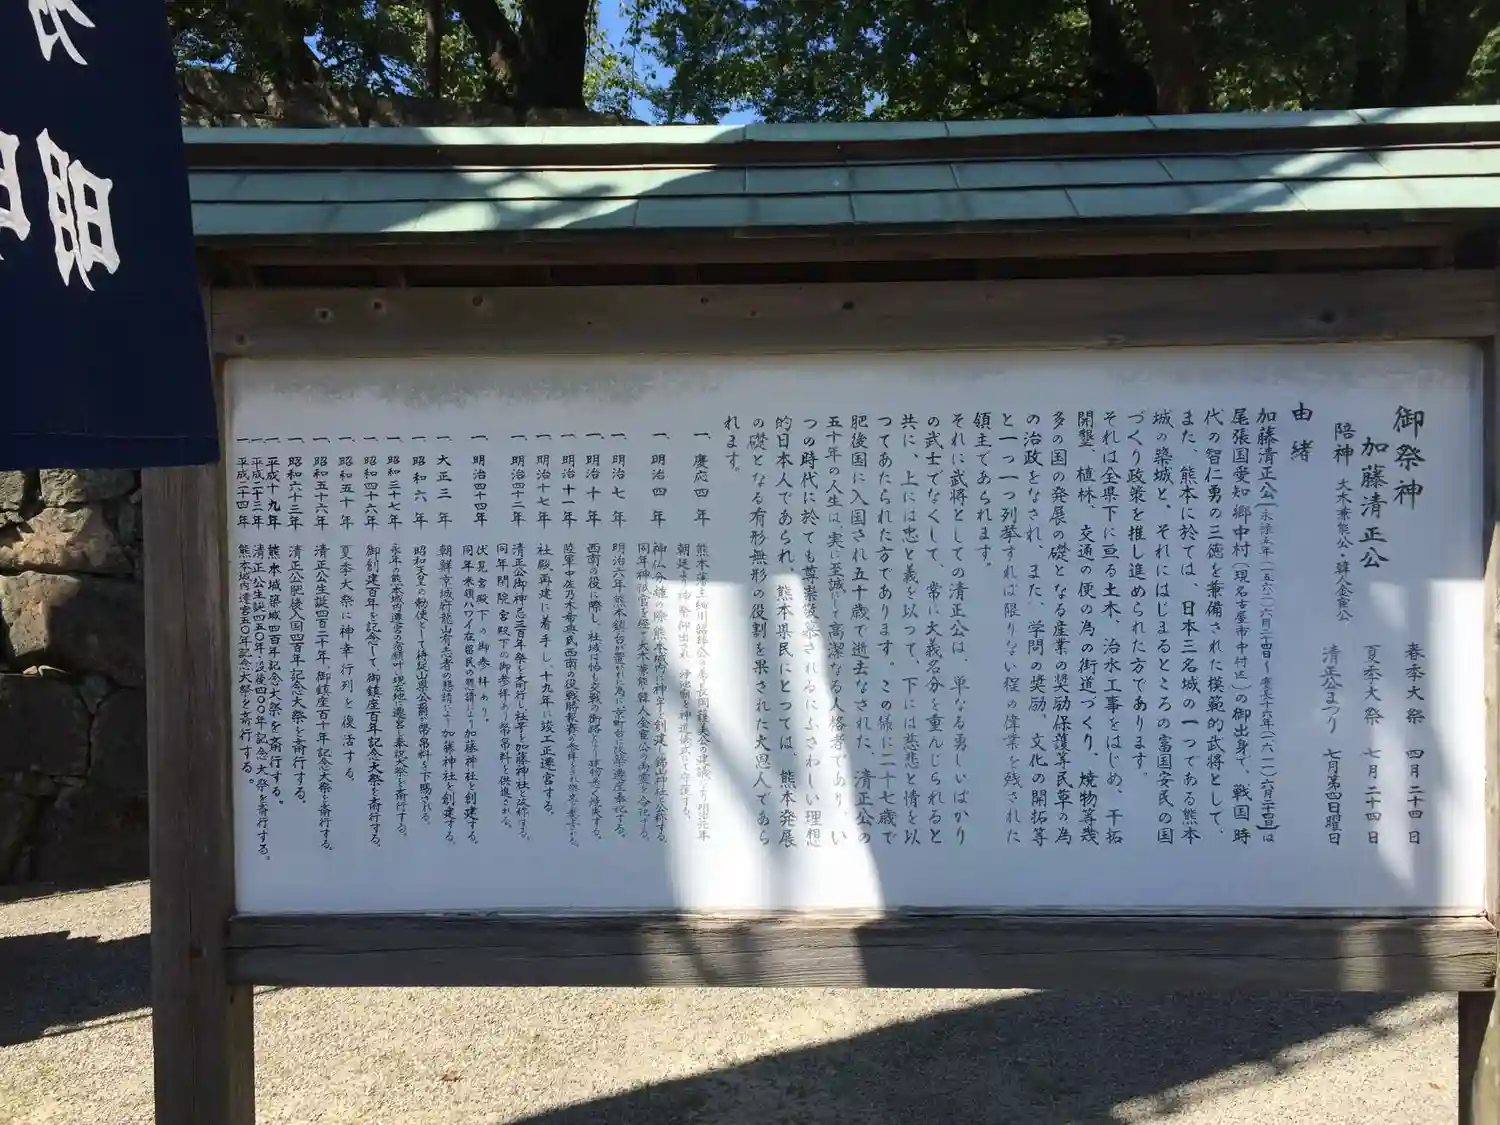 御祭神
加藤清正公
陪神 大木兼能公・韓人金宦公
春季大祭 四月二十四日
夏季大祭 七月二十四日
清正公まつり 七月第四日曜日
由緒
加藤清正公〔永禄五年(一五六二)六月二十四日〜慶長十六年(一六一一)六月二十四日〕は
尾張国愛知郷中村(現名古屋市中村区)の御出身で、戦国時
代の智仁勇の三徳を兼備された模範的武将として、
また、熊本に於ては、日本三名城の一つである熊本
城の築城と、それにはじまるところの富国安民の国
づくり政策を推し進められた方であります。
それは全県下に亘る土木、治水工事をはじめ、干拓
開墾、植林、交通の便の為の街道づくり、焼物等幾
多の国の発展の礎となる産業の奨励保護等民草の為
の治政をなされ、また、学問の奨励、文化の開拓等
と一つ一つ列挙すれば限りない程の偉業を残された
領主であられます。
それに武将としての清正公は、単なる勇しいばかり
の武士でなくして、常に大義名分を重んじられると
共に、上には忠と義を以つて、下には慈悲と情を以
つてあたられた方であります。この様に二十七歳で
肥後国に入国され五十歳で逝去なされた、清正公の
五十年の人生は、実に至誠にして高潔なる人格者であり、い
つの時代に於ても尊崇後慕されるにふさわしい理想
的日本人であられ、熊本県民にとつては、熊本発展
の礎となる有形無形の役割を果された大恩人であら
れます。
一、慶応四年 熊本藩主細川韶邦公の弟長岡護美公の建議により明治元年
朝廷より神祭御出され、浄池廟を神道式にて守護する。
一、明治四年 神仏分離の際熊本城内に神社を創建し錦山神社と称する。
同年神祇官を経て大木兼能韓人金宦公の両霊を合祀する。
一、明治七年 明治六年熊本鎮台が置かれし為に京町台に社殿造営遷座奉祀する。
一、明治十年 西南の役に際し、社域は恰も交戦の街路となり建物悉く焼失する。
一、明治十一年
一、明治十七年 社殿再建に着手し、十九年に竣工正遷宮する。
一、明治四十二年 清正公御神忌三百年祭を斎行し社号を加藤神社と改称する。
同年閑院宮殿下の御参拝あり、幣帛料を供進さる。
一、明治四十四年 伏見宮殿下の御参拝あり。
同年米領ハワイ在留民の懇請により加藤神社を創建する。
一、大正三年 朝鮮京城府龍山有志者の懇請により加藤神社を創建する。
一、昭和六年
一、昭和三十七年 永年の熊本城内遷宮の宿願叶い現在地に遷宮し奉祝大祭を斎行する。
一、昭和四十六年 御創建百年を記念して、御鎮座百年記念大祭を斎行する。
一、昭和五十年 夏季大祭に神幸行列を復活する。
一、昭和五十六年 清正公生誕四百二十年、御鎮座百十年記念大祭を斎行する。
一、昭和六十三年 清正公肥後入国四百年記念大祭を斎行する。
一、平成十九年 熊本城築城四百年記念大祭を斎行する。
一、平成二十三年 清正公生誕四五〇年・没後四〇〇年記念大祭を斎行する。
一、平成二十四年 熊本城内遷宮五〇年記念大祭を斎行する。